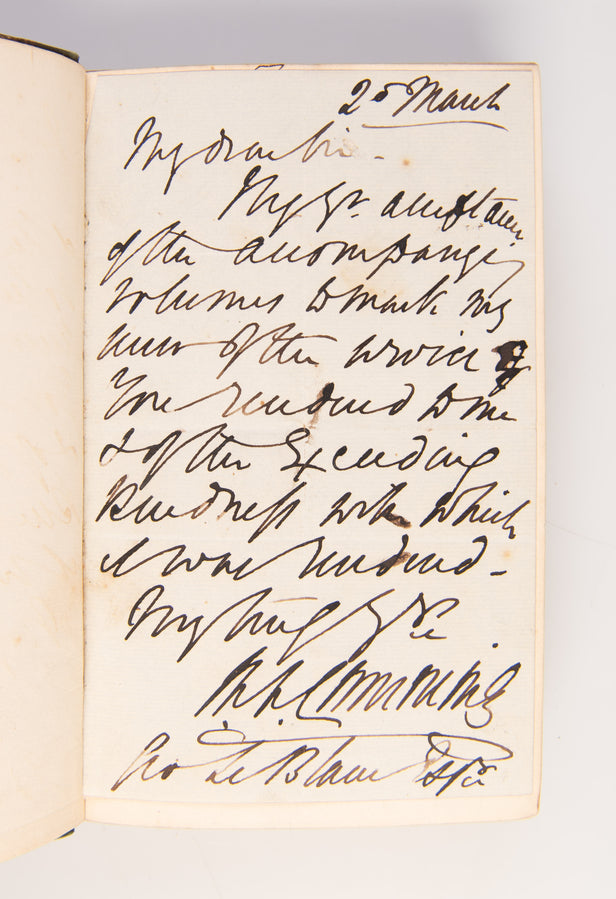 25 March
My dear Sir -
Yr. acceptance
of the accompanying
volumes to mark my
sense of the service
You rendered to me
& of the Exceeding
Kindness with which
it was rendered -
truly Yrs
Cumming
Geo Le Blanc Esqre